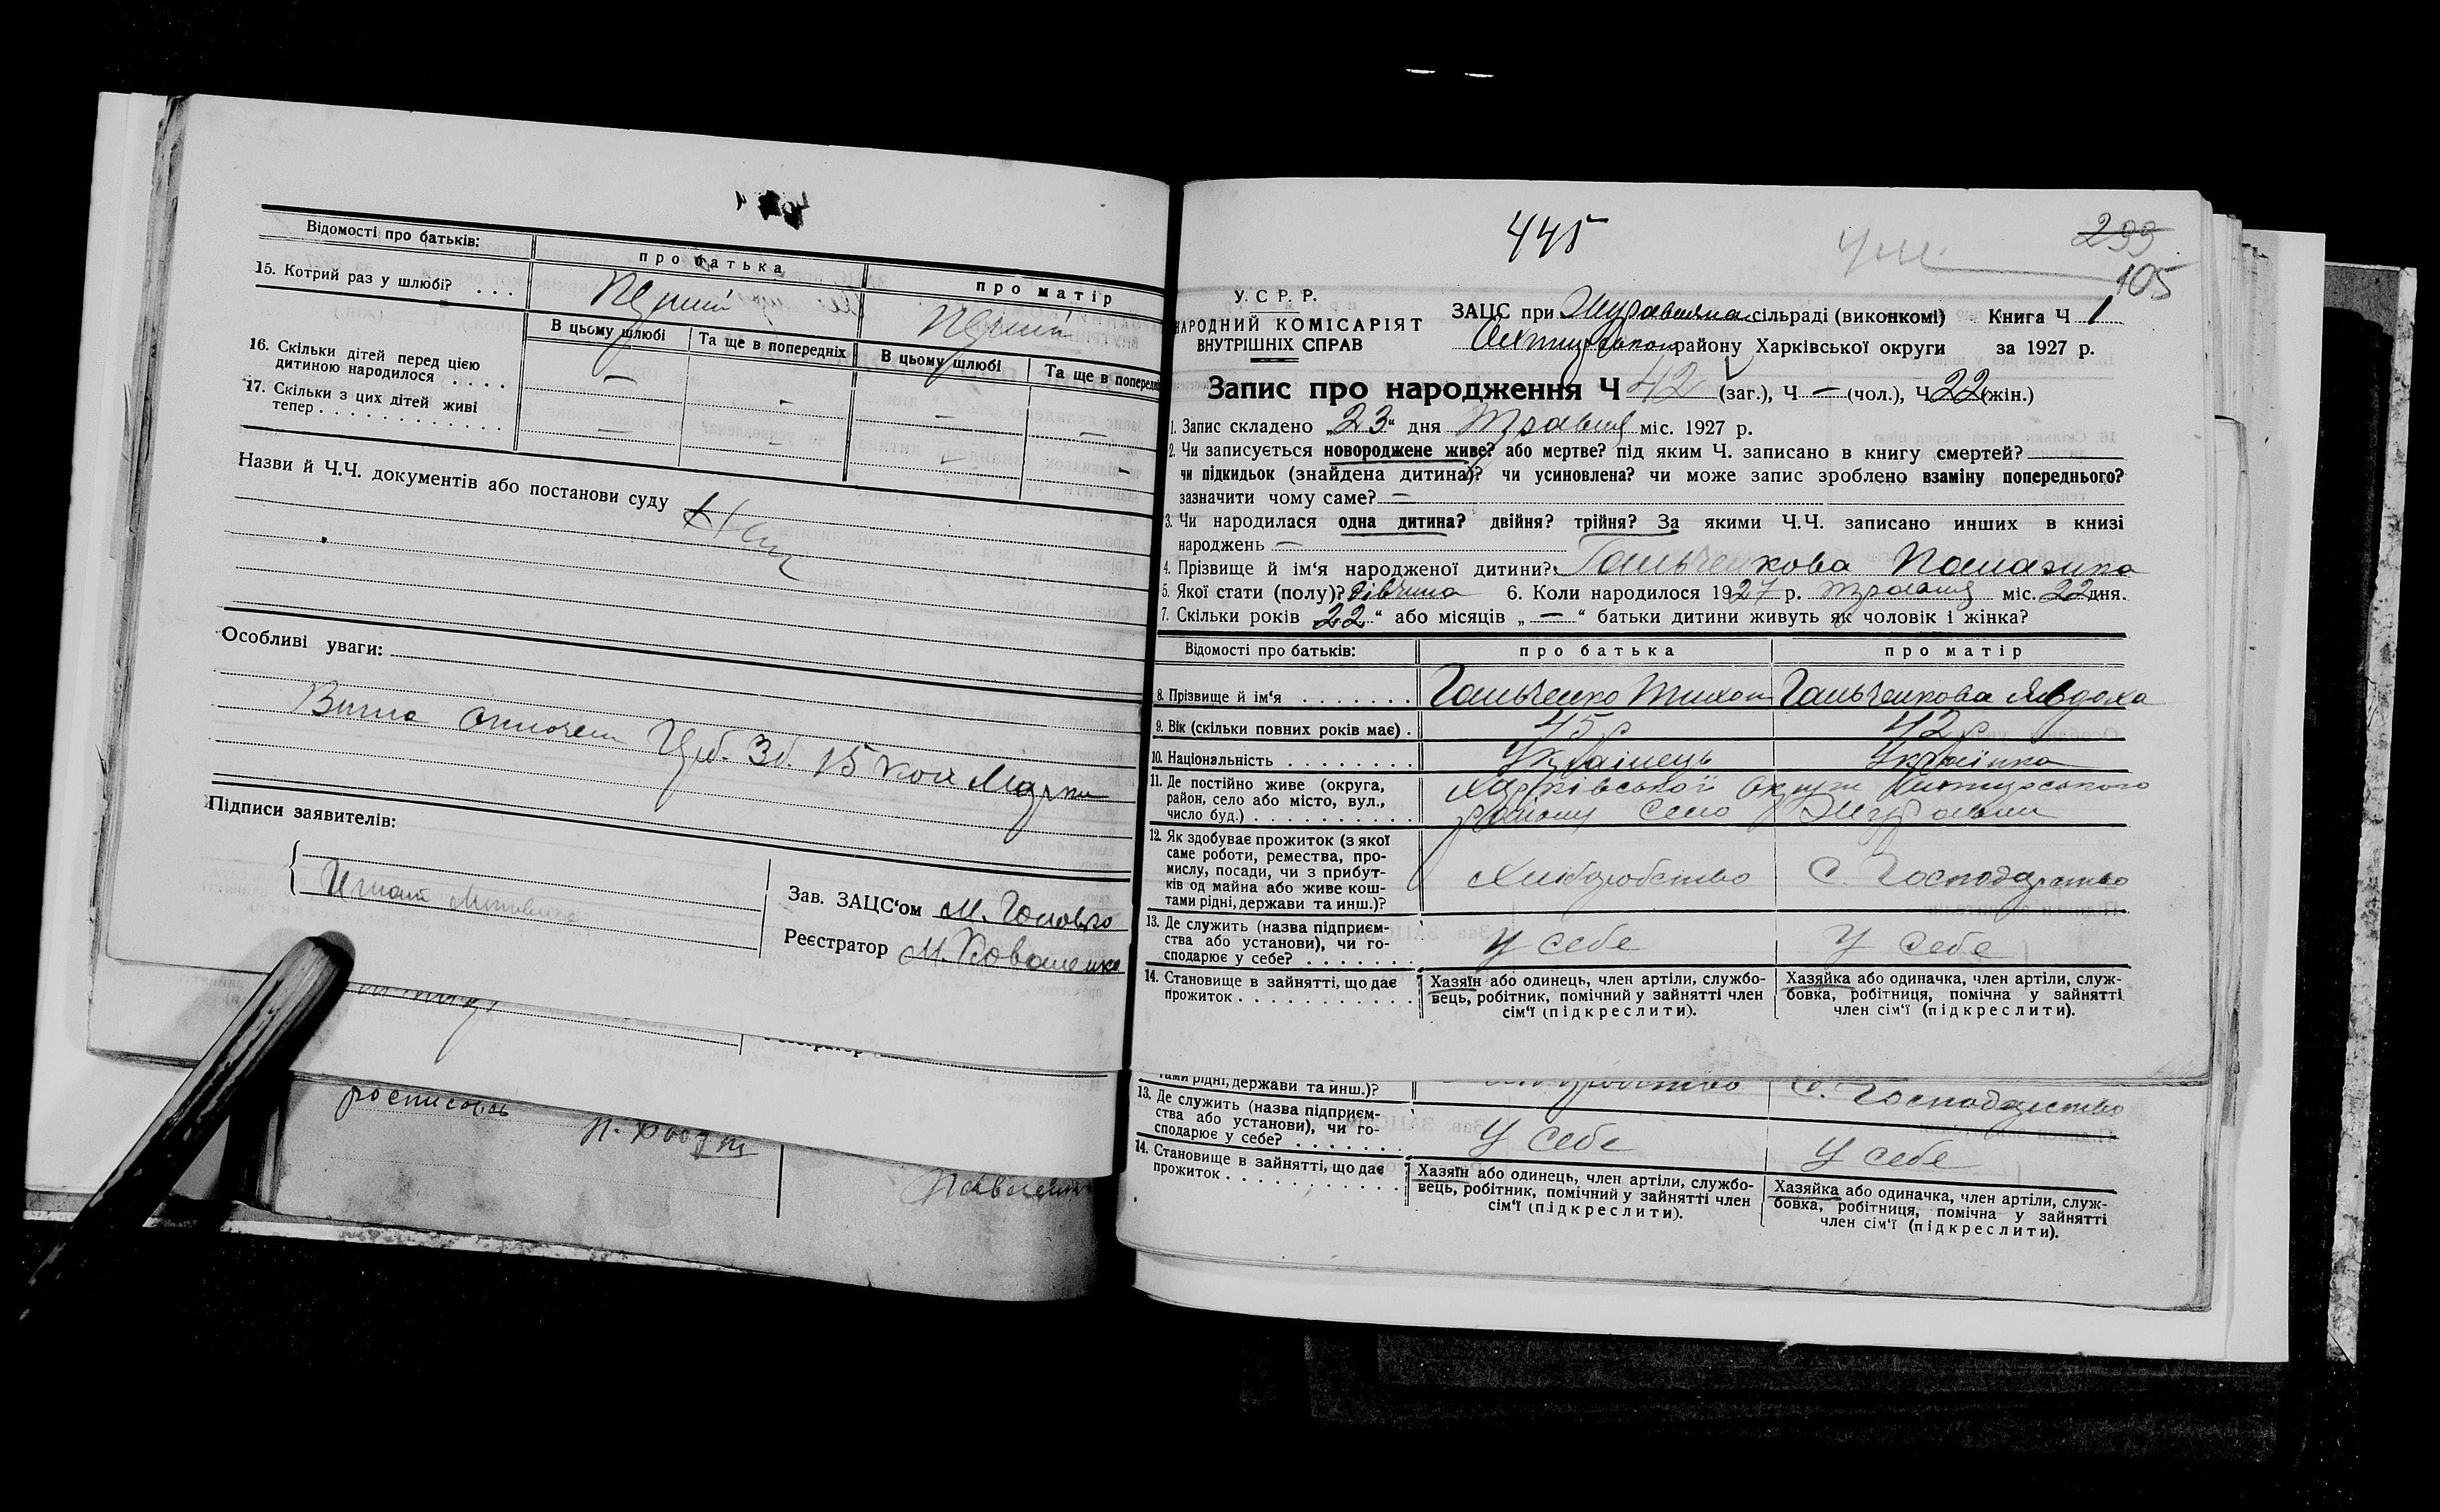 Відомості про батьків:
про батька
про матір
15. Котрий раз у шлюбі? . . .
Перший
Перший
В цьому шлюбі
Та ще в попередніх
В цьому шлюбі
Та ще в попередні
16. Скільки дітей перед цією
дитиною народилося . . . .
— - — —
17. Скільки з цих дітей живі
тепер . . . . . . . . . . .
— - - -
Назви й Ч.Ч. документів або постанови суду
Особливі уваги:
Гсб. Зб. 15 коп Марки
Підписи заявителів:
Зав. ЗАЦС‘ом
Реєстратор М. Коваленко
росписалсь
445
299
105
У. С. Р. Р.
НАРОДНИЙ КОМІСАРІЯТ
ВНУТРІШНІХ СПРАВ
ЗАЦС при сільраді (виконкомі) Книга Ч 1
району Харківської округи за 1927 р.
Запис про народження Ч 42 (заг.), Ч — (чол.), Ч 22 (жін.)
1. Запис складено „23“ дня Травня міс. 1927 р.
2. Чи записується новороджене живе? або мертве? під яким Ч. записано в книгу смертей?
чи підкидьок (знайдена дитина)? чи усиновлена? чи може запис зроблено взаміну попереднього?
зазначити чому саме? —
3. Чи народилася одна дитина? двійня? трійня? За якими Ч.Ч. записано инших в книзі
народжень —
4. Прізвище й ім‘я народженої дитини? Гальченкова
5. Якої стати (полу)? Дівчина 6. Коли народилося 1927 р. Травня міс. 22 дня.
7. Скільки років „22“ або місяців „—“ батьки дитини живуть як чоловік і жінка?
Відомості про батьків:
про батька
про матір
8. Прізвище й ім‘я . . . . . . .
Гальченко Тихон
Гальченкова Явдоха
9. Вік (скільки повних років має) .
45 р
42 р
10. Національність . . . . . . . .
Українець
Українка
11. Де постійно живе (округа,
район, село або місто, вул.,
число буд.) . . . . . . . . . .
Харківської Округи Охтирського
району Село Журавлі
12. Як здобуває прожиток (з якої
саме роботи, ремества, про-
мислу, посади, чи з прибут-
ків од майна або живе кош-
тами рідні, держави та инш.)?
Хліборобство
С. Господарство
13. Де служить (назва підприєм-
ства або установи), чи го-
сподарює у себе? . . . . . . .
У себе
У себе
14. Становище в зайнятті, що дає
прожиток . . . . . . . . . . . .
Хазяїн або одинець, член артіли, службо-
вець, робітник, помічний у зайнятті член
сім‘ї (підкреслити).
Хазяйка або одиначка, член артіли, служ-
бовка, робітниця, помічна у зайнятті
член сім‘ї (підкреслити).
тами рідні, держави та инш.)?
С. Господарство
13. Де служить (назва підприєм-
ства або установи), чи го-
сподарює у себе? . . . . . . .
У себе
У себе
14. Становище в зайнятті, що дає
прожиток . . . . . . . . . . . .
Хазяїн або одинець, член артіли, службо-
вець, робітник, помічний у зайнятті член
сім‘ї (підкреслити).
Хазяйка або одиначка, член артіли, служ-
бовка, робітниця, помічна у зайнятті
член сім‘ї (підкреслити).